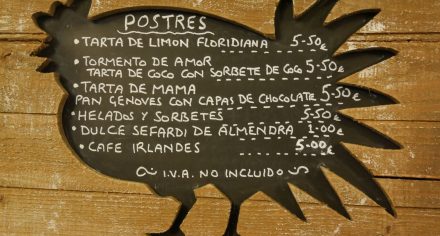 POSTRES
• TARTA DE LIMON FLORIDIANA 5-50€
• TORMENTO DE AMOR
TARTA DE COCO CON SORBETE DE COCO 5-50€
• TARTA DE MAMA
PAN GENOVES CON CAPAS DE CHOCOLATE 5-50€
• HELADOS Y SORBETES 5-50€
• DULCE SEFARDI DE ALMENDRA 1-00€
• CAFE IRLANDES 5-00€
I.V.A. NO INCLUIDO